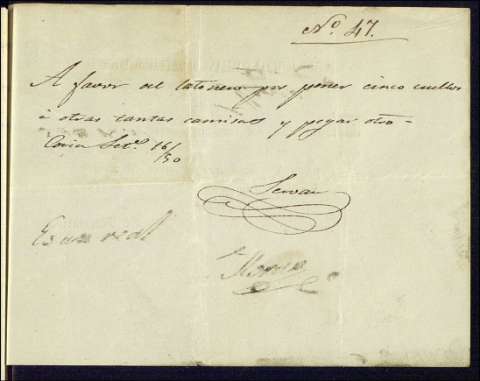 Nº 47.
A favor del latonero por poner cinco cuellos
á otras tantas camisas y pegar otro=
Coria Set.e 16/50
Servan
Es un real